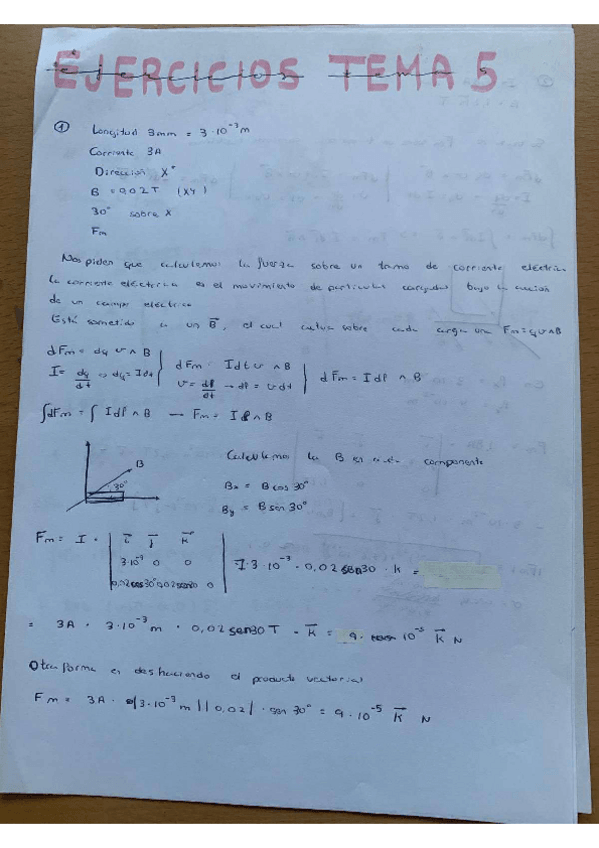 EJERCICIOS TEMA 5
① Longitud 3mm = 3·10⁻³ m
Corriente 3A
Dirección X⁺
B = 0,02 T (XY)
30° sobre X
Fm
Nos piden que calculemos la fuerza sobre un tramo de corriente eléctrica
la corriente eléctrica es el movimiento de partículas cargadas bajo la acción
de un campo eléctrico
Está sometido a un B⃗, el cual actua sobre cada carga una Fm = q v ∧ B
dFm = dq v ∧ B
I = dq/dt ⇒ dq = I dt
dFm = I dt v ∧ B
v = dl/dt → dl = v dt
dFm = I dl ∧ B
∫dFm = ∫ I dl ∧ B → Fm = I l ∧ B
B
30°
Calculemos la B en cada componente
Bx = B cos 30°
By = B sen 30°
Fm = I · | i⃗ j⃗ k⃗ |
| 3·10⁻³ 0 0 |
| 0,02cos30° 0,02sen30 0 |
= I·3·10⁻³ · 0,02 sen30 · k =
= 3A · 3·10⁻³ m · 0,02 sen30 T · k⃗ = 9· 10⁻⁵ k⃗ N
Otra forma es deshaciendo el producto vectorial
Fm = 3A · |3·10⁻³ m| |0,02| · sen 30° = 9·10⁻⁵ k⃗ N